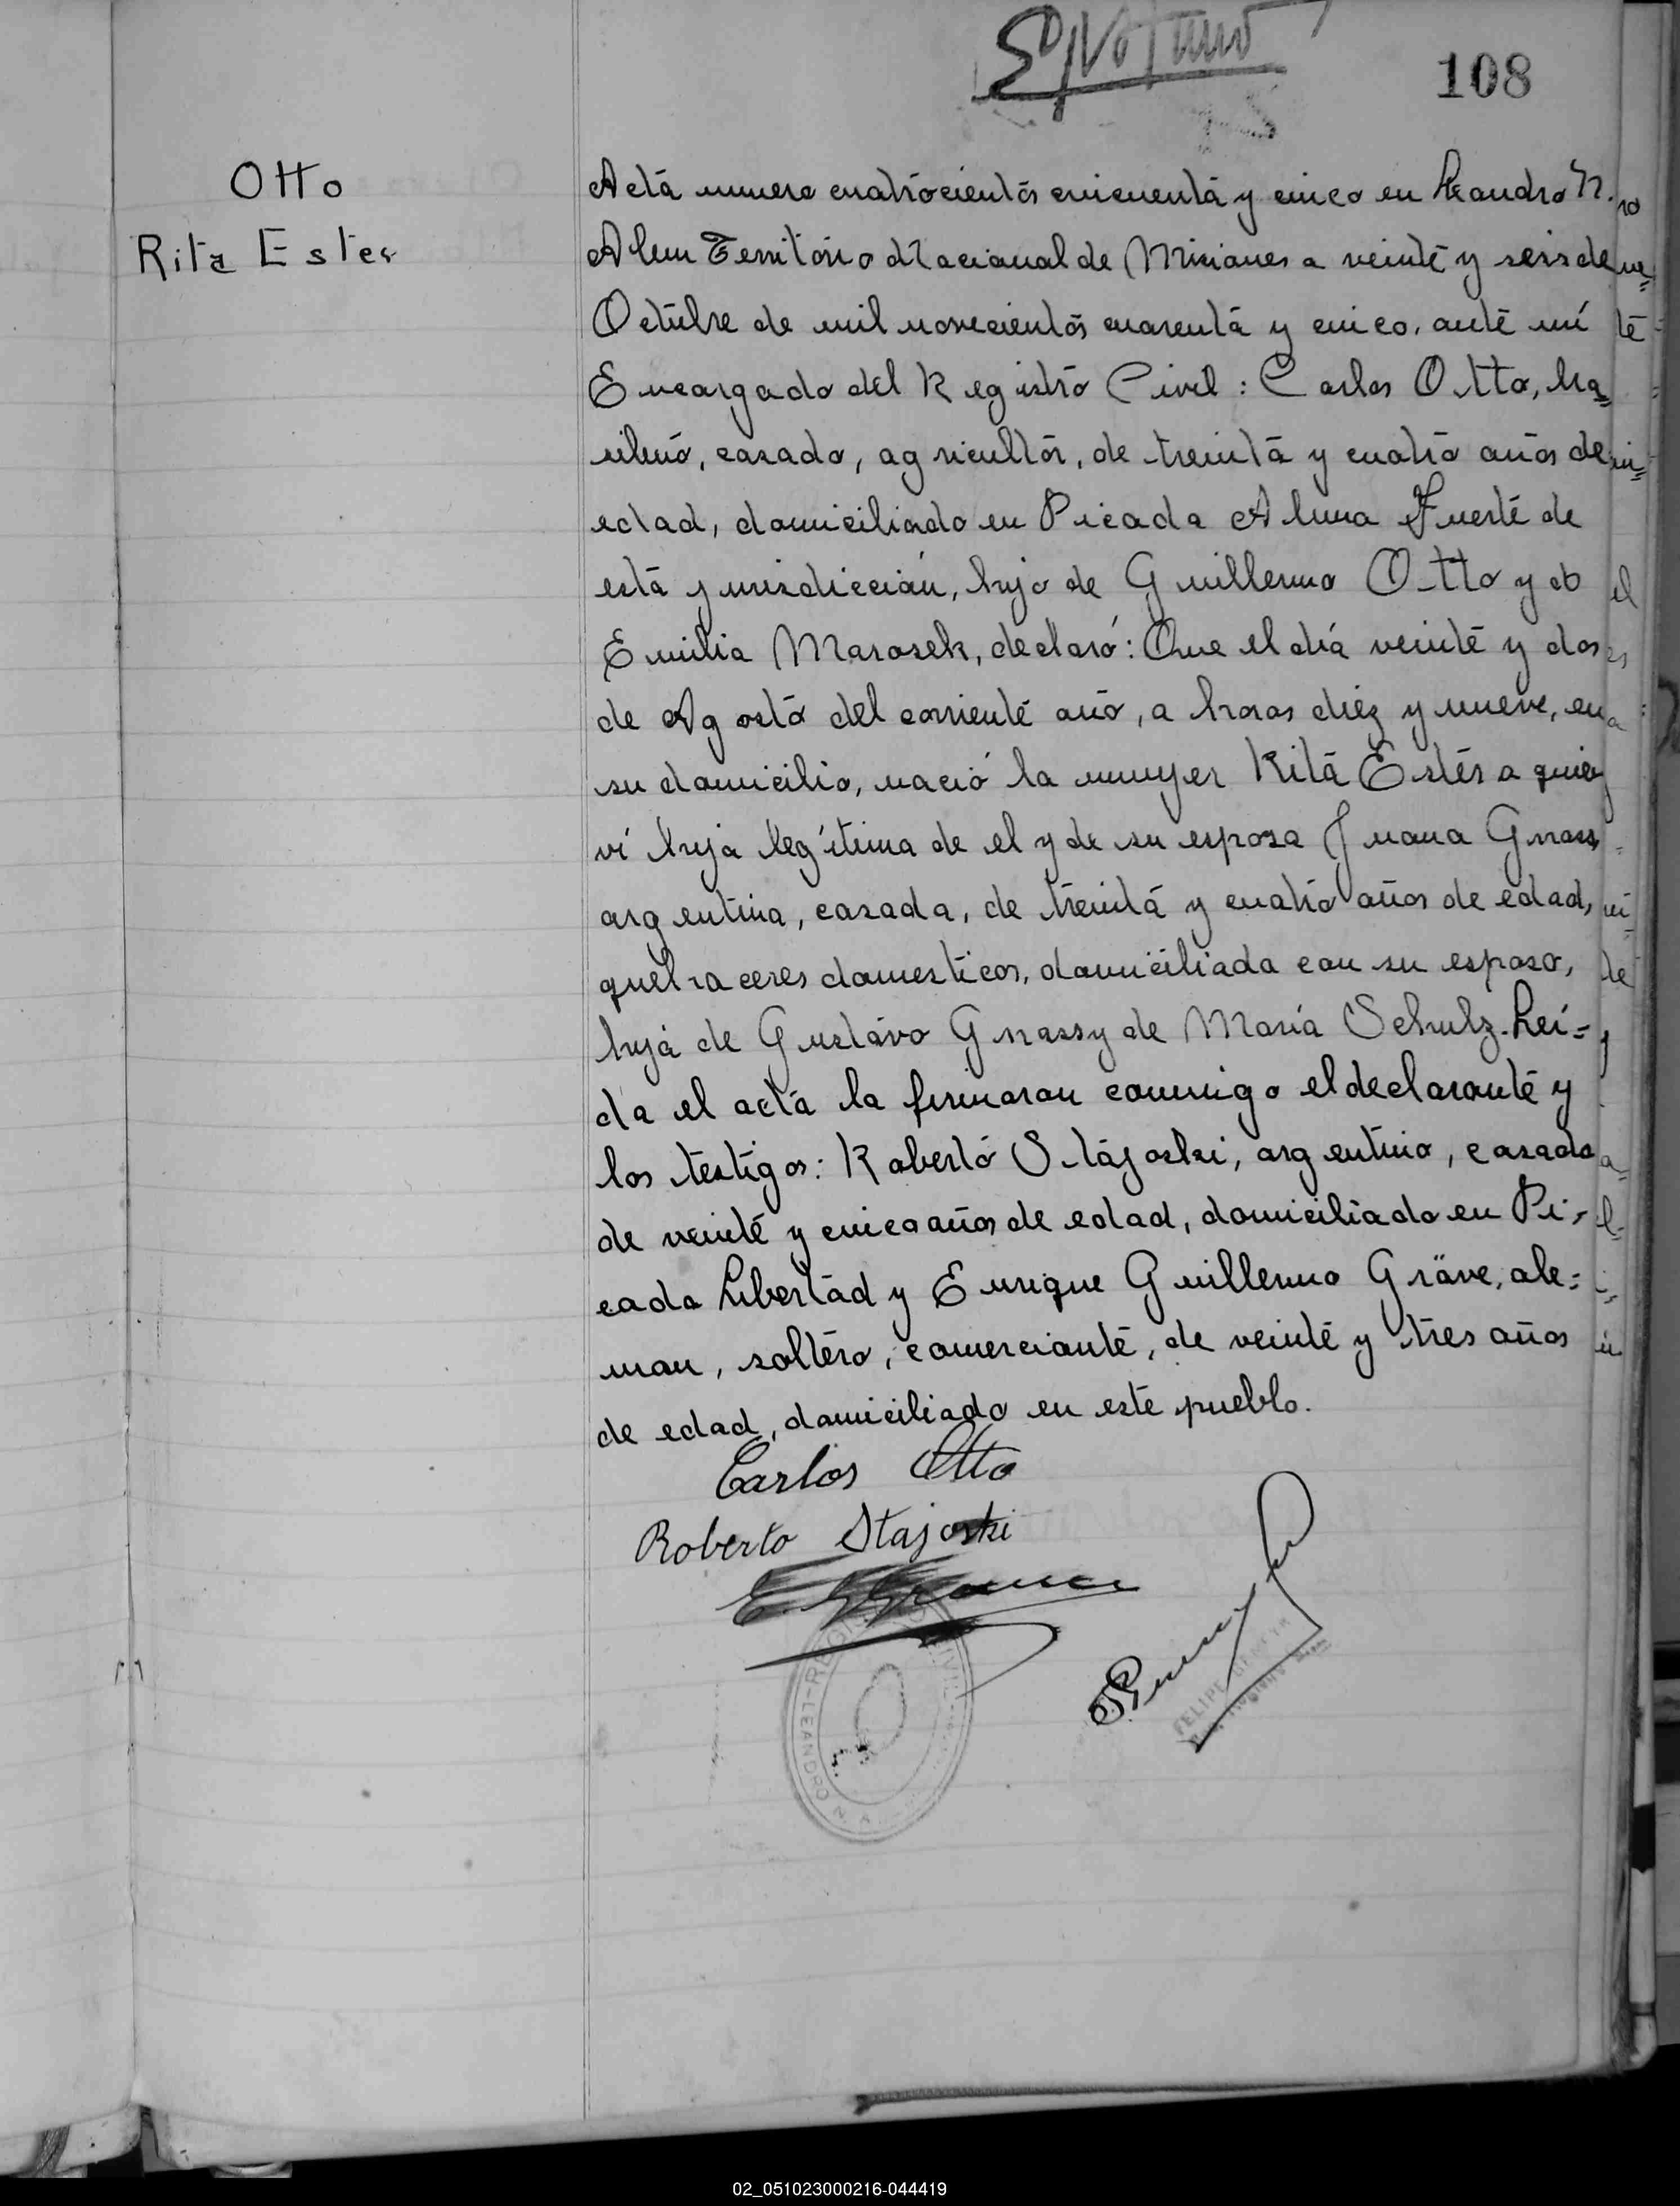 108
Otto
Rita Ester
Acta numero cuatrocientos cincuenta y cinco en Leandro N.
Alem Territorio Nacional de Misiones a veinte y seis de
Octubre de mil novecientos cuarenta y cinco, ante mí
Encargado del Registro Civil: Carlos Otto, bra=
sileño, casado, agricultor, de treinta y cuatro años de
edad, domiciliado en Picada Alma Fuerte de
esta jurisdicción, hijo de Guillermo Otto y de
Emilia Marosek, declaró: Que el día veinte y dos
de Agosto del corriente año, a horas diez y nueve, en
su domicilio, nació la mujer Rita Ester a quien
ví hija legítima de el y de su esposa Juana Grass
argentina, casada, de treinta y cuatro años de edad,
quehaceres domesticos, domiciliada con su esposo,
hija de Gustavo Grass y de María Schulz. Leí=
da el acta la firmaron conmigo el declarante y
los testigos: Roberto Stajoski, argentino, casado
de veinte y cinco años de edad, domiciliado en Pi=
cada Libertad y Enrique Guillermo Gräve, ale=
man, soltero, comerciante, de veinte y tres años
de edad, domiciliado en este pueblo.
Carlos Otto
Roberto Stajoski
LEANDRO N. A
FELIPE
02_051023000216-044419